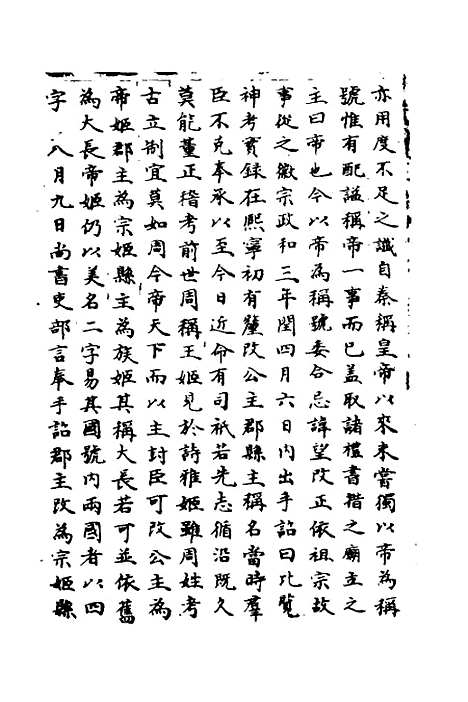 亦用度不足之讖自秦稱皇帝以來未嘗獨以帝為稱
號惟有配謚稱帝一事而已蓋取諸禮書措之廟主之
主曰帝也今以帝為稱號委合忌諱望改正依祖宗故
事從之徽宗政和三年閏四月六日內出手詔曰比覽
神考實錄在熙寧初有釐改公主郡縣主稱名當時羣
臣不克奉承以至今日近命有司祇若先志循沿既久
莫能董正稽考前世周稱王姬見於詩雅姬雖周姓考
古立制宜莫如周今帝天下而以主封臣可改公主為
帝姬郡主為宗姬縣主為族姬其稱大長若可並依舊
為大長帝姬仍以美名二字易其國號內兩國者以四
字　八月九日尚書吏部言奉手詔郡主改為宗姬縣